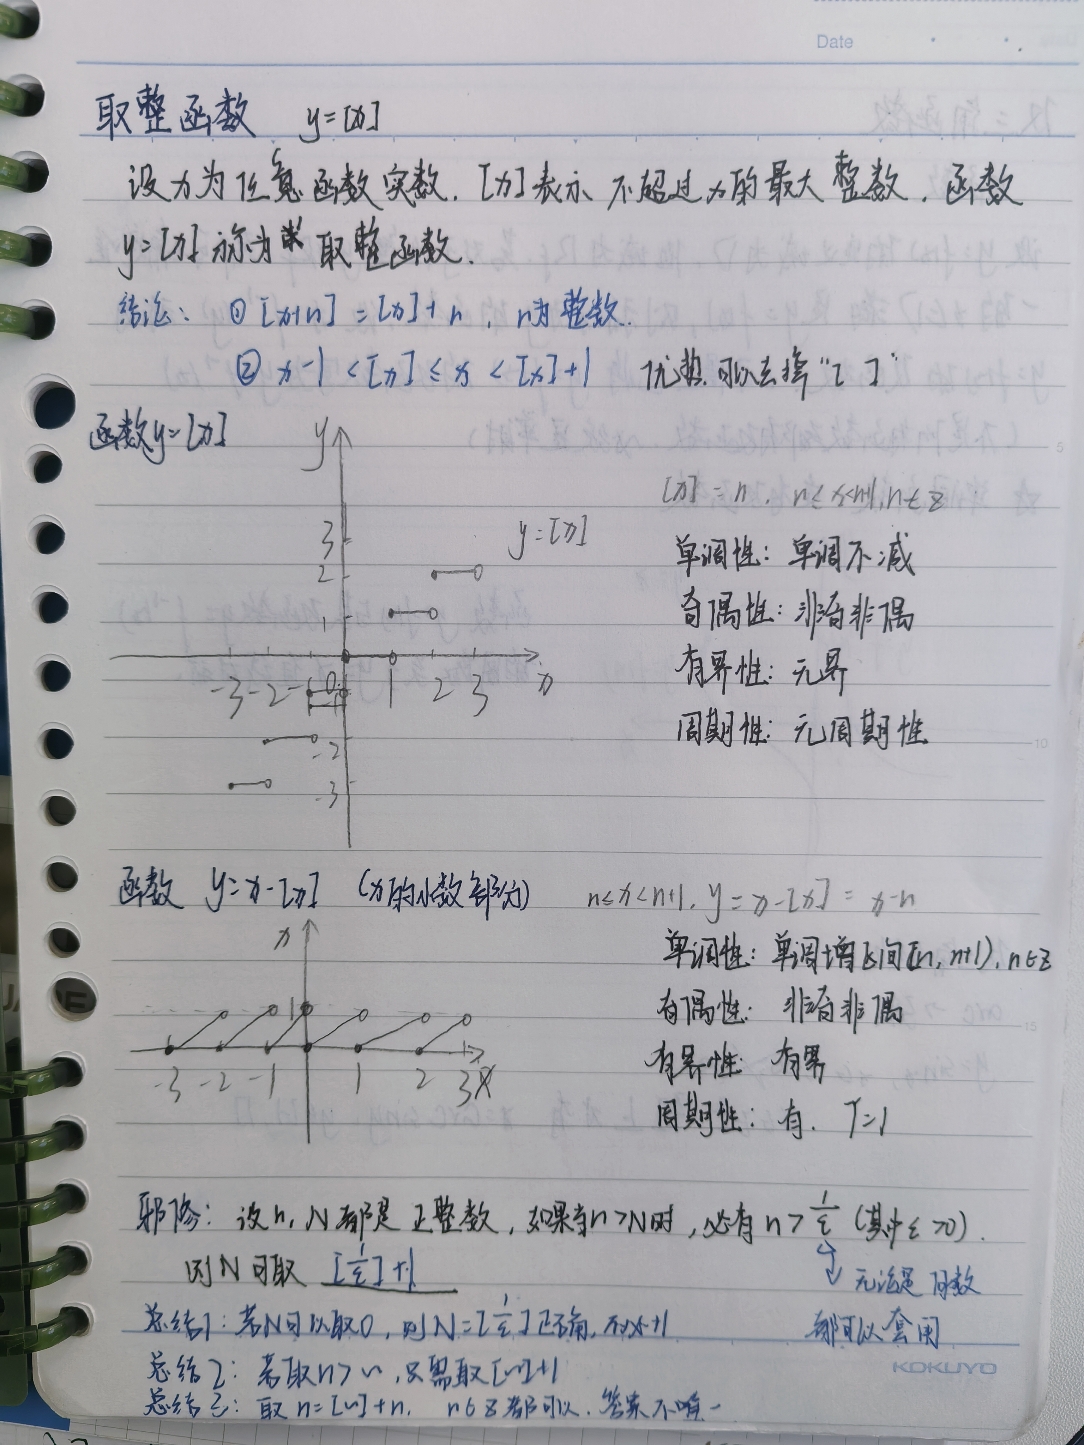 Date
取整函数 y=[x]
设x为任意函数实数. [x]表示 不超过x的最大整数. 函数
y=[x] 称为 取整函数.
结论: ① [x+n] = [x]+n , n为整数.
② x-1 < [x] ≤ x < [x]+1 优势 可以去掉“[ ]”
函数y=[x]
y
[x] = n . n≤x<n+1, n∈Z
3
y=[x]
单调性: 单调不减
2
奇偶性: 非奇非偶
1
有界性: 无界
-3 -2 -1 0 1 2 3 x
-1
周期性: 无周期性
-2
-3
函数 y=x-[x] (x的小数部分) n≤x<n+1. y=x-[x]=x-n
x
单调性: 单调增区间[n, n+1). n∈Z
1
有偶性: 非奇非偶
有界性: 有界
-3 -2 -1 1 2 3 X
周期性: 有. T=1
邪修: 设n, N都是正整数, 如果当n>N时, 必有n>1/ε (其中ε>0).
则N可取 [1/ε]+1
无论是
总结1: 若N可以取0, 则N=[1/ε]正确, 不必+1
都可以套用
KOKUYO
总结2: 若取n>~ , 只需取[~]+1
总结3: 取 n=[~]+n. n∈Z都可以. 答案不唯一